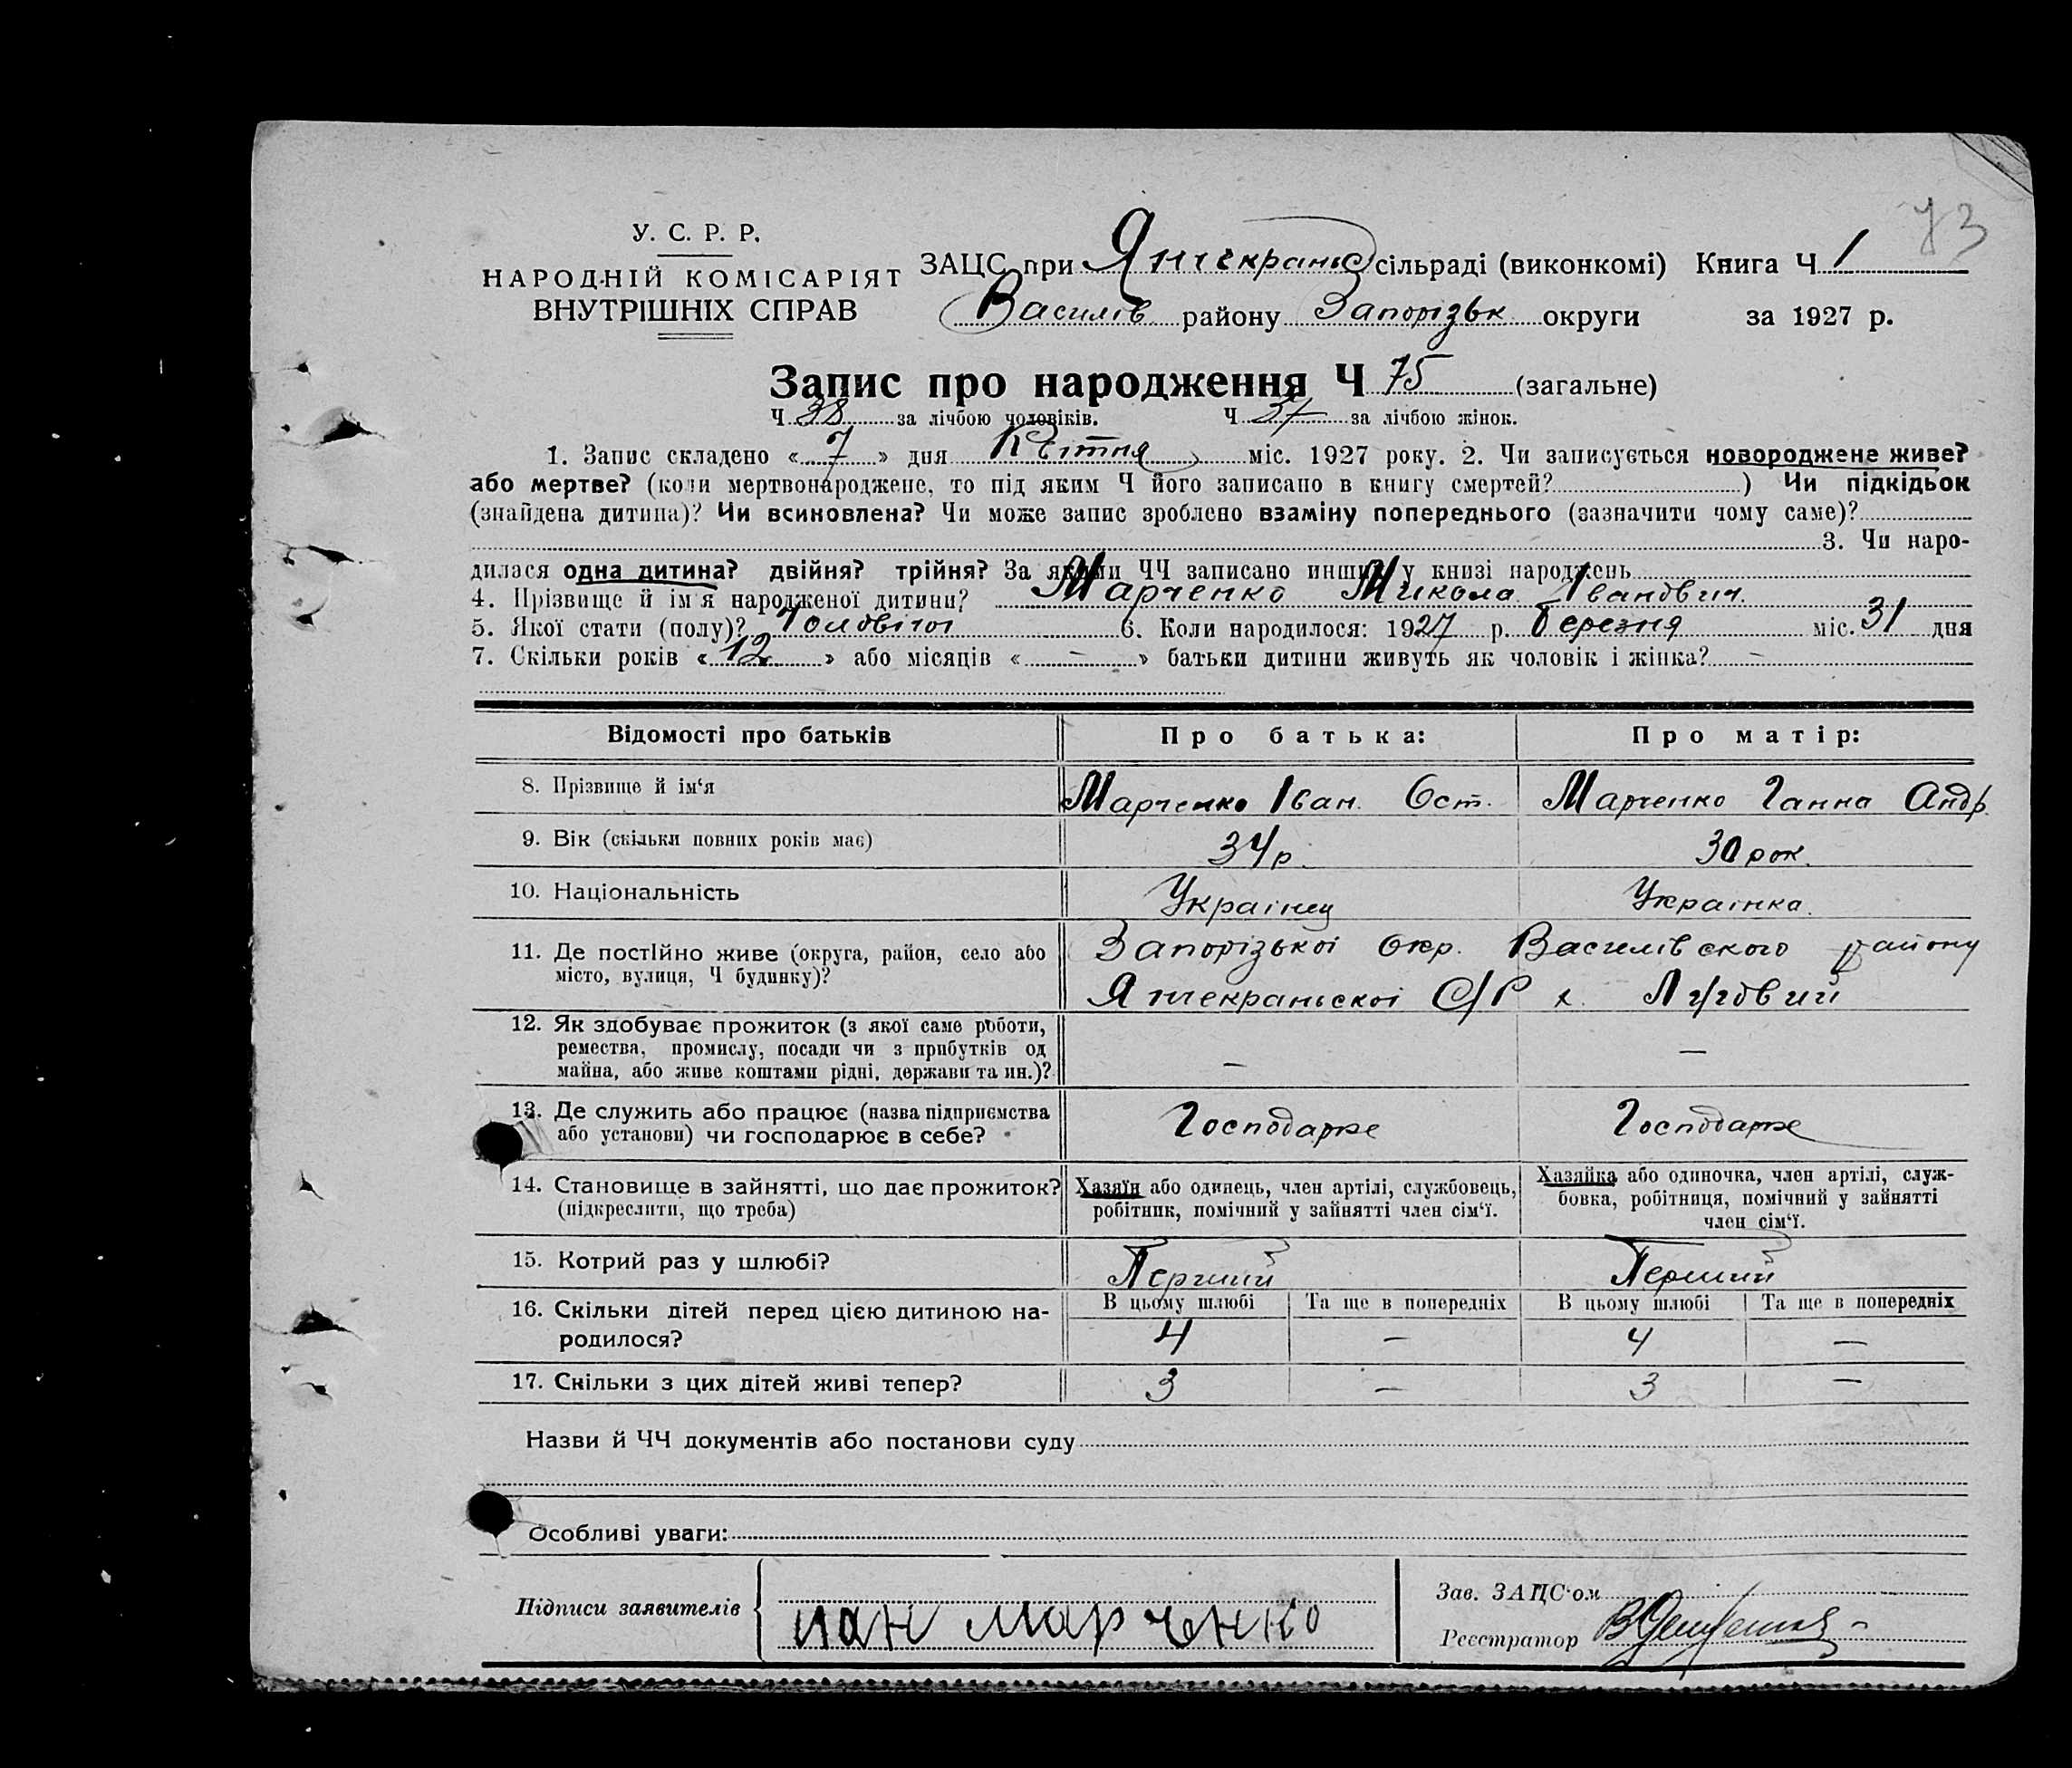 73
У. С. Р. Р.
НАРОДНІЙ КОМІСАРІЯТ
ВНУТРІШНІХ СПРАВ
ЗАЦС при Янчекраньс сільраді (виконкомі) Книга Ч 1
Василів району Запорізьк округи за 1927 р.
Запис про народження Ч 75 (загальне)
Ч 38 за лічбою чоловіків. Ч 37 за лічбою жінок.
1. Запис складено «7» дня Квітня міс. 1927 року. 2. Чи записується новороджене живе?
або мертве? (коли мертвонароджене, то під яким Ч його записано в книгу смертей?) Чи підкідьок
(знайдена дитина)? Чи всиновлена? Чи може запис зроблено взаміну попереднього (зазначити чому саме)?
3. Чи наро-
дилася одна дитина? двійня? трійня? За якими ЧЧ записано инших у книзі народжень
4. Прізвище й ім'я народженої дитини? Марченко Микола Іванович.
5. Якої статі (полу)? Чоловічої 6. Коли народилося: 1927 р. Березня міс. 31 дня
7. Скільки років «12» або місяців «–» батьки дитини живуть як чоловік і жінка? –
Відомості про батьків Про батька: Про матір:
8. Прізвище й ім'я Марченко Іван Ост. Марченко Ганна Андр.
9. Вік (скільки повних років має) 34 р. 30 рок.
10. Національність Українец Українка.
11. Де постійно живе (округа, район, село або Запорізької Окр. Василівского району
місто, вулиця, Ч будинку)? Янчекраньскої С/Р х. Луговий
12. Як здобуває прожиток (з якої саме роботи,
ремества, промислу, посади чи з прибутків од – –
майна, або живе коштами рідні, держави та ин.)?
13. Де служить або працює (назва підприємства Господарює Господарює
або установи) чи господарює в себе?
14. Становище в зайнятті, що дає прожиток? Хазяїн або одинець, член артілі, службовець, Хазяйка або одиночка, член артілі, служ-
(підкреслити, що треба) робітник, помічний у зайнятті член сім'ї. бовка, робітниця, помічний у зайнятті
член сім'ї.
15. Котрий раз у шлюбі? Перший Перший
16. Скільки дітей перед цією дитиною на- В цьому шлюбі Та ще в попередніх В цьому шлюбі Та ще в попередніх
родилося? 4 – 4 –
17. Скільки з цих дітей живі тепер? 3 – 3 –
Назви й ЧЧ документів або постанови суду
Особливі уваги:
Підписи заявителів
иан марченко
Зав. ЗАЦС'ом
Реєстратор